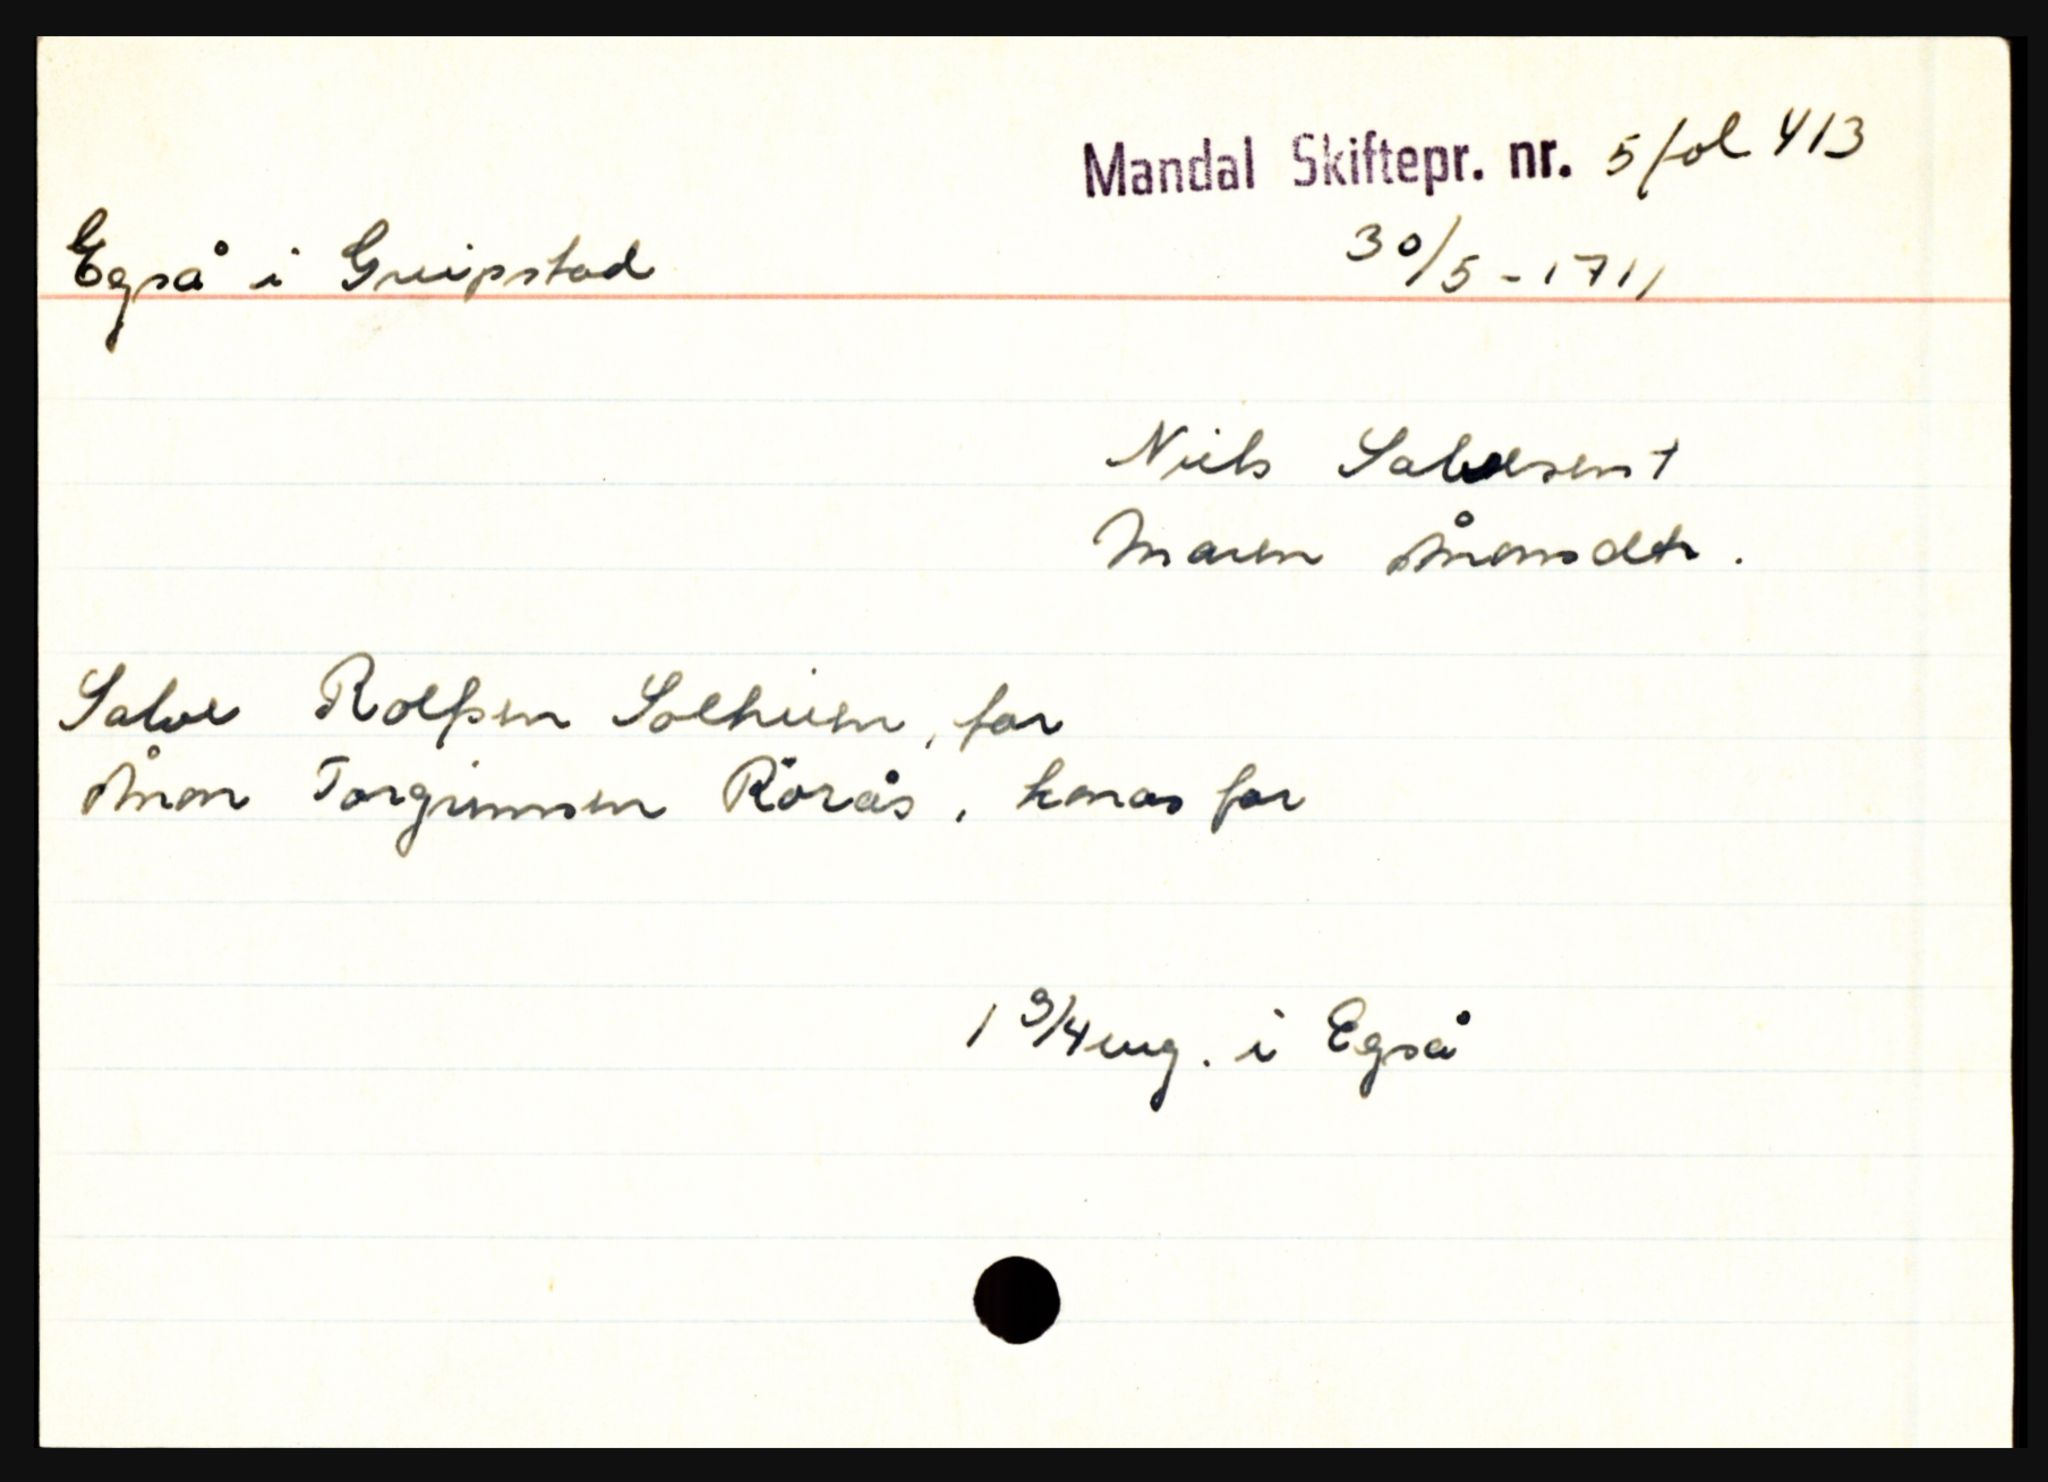 Mandal Skiftepr. nr. 5 fol 413
30/5 - 1711
Egså i Greipstad
Niels Salvesen †
Maren Ånonsdtr.
Salve Rolfsen Solheim, far
Ånon Torgrimsen Rörås, konas far
1 3/4 eng. i Egså